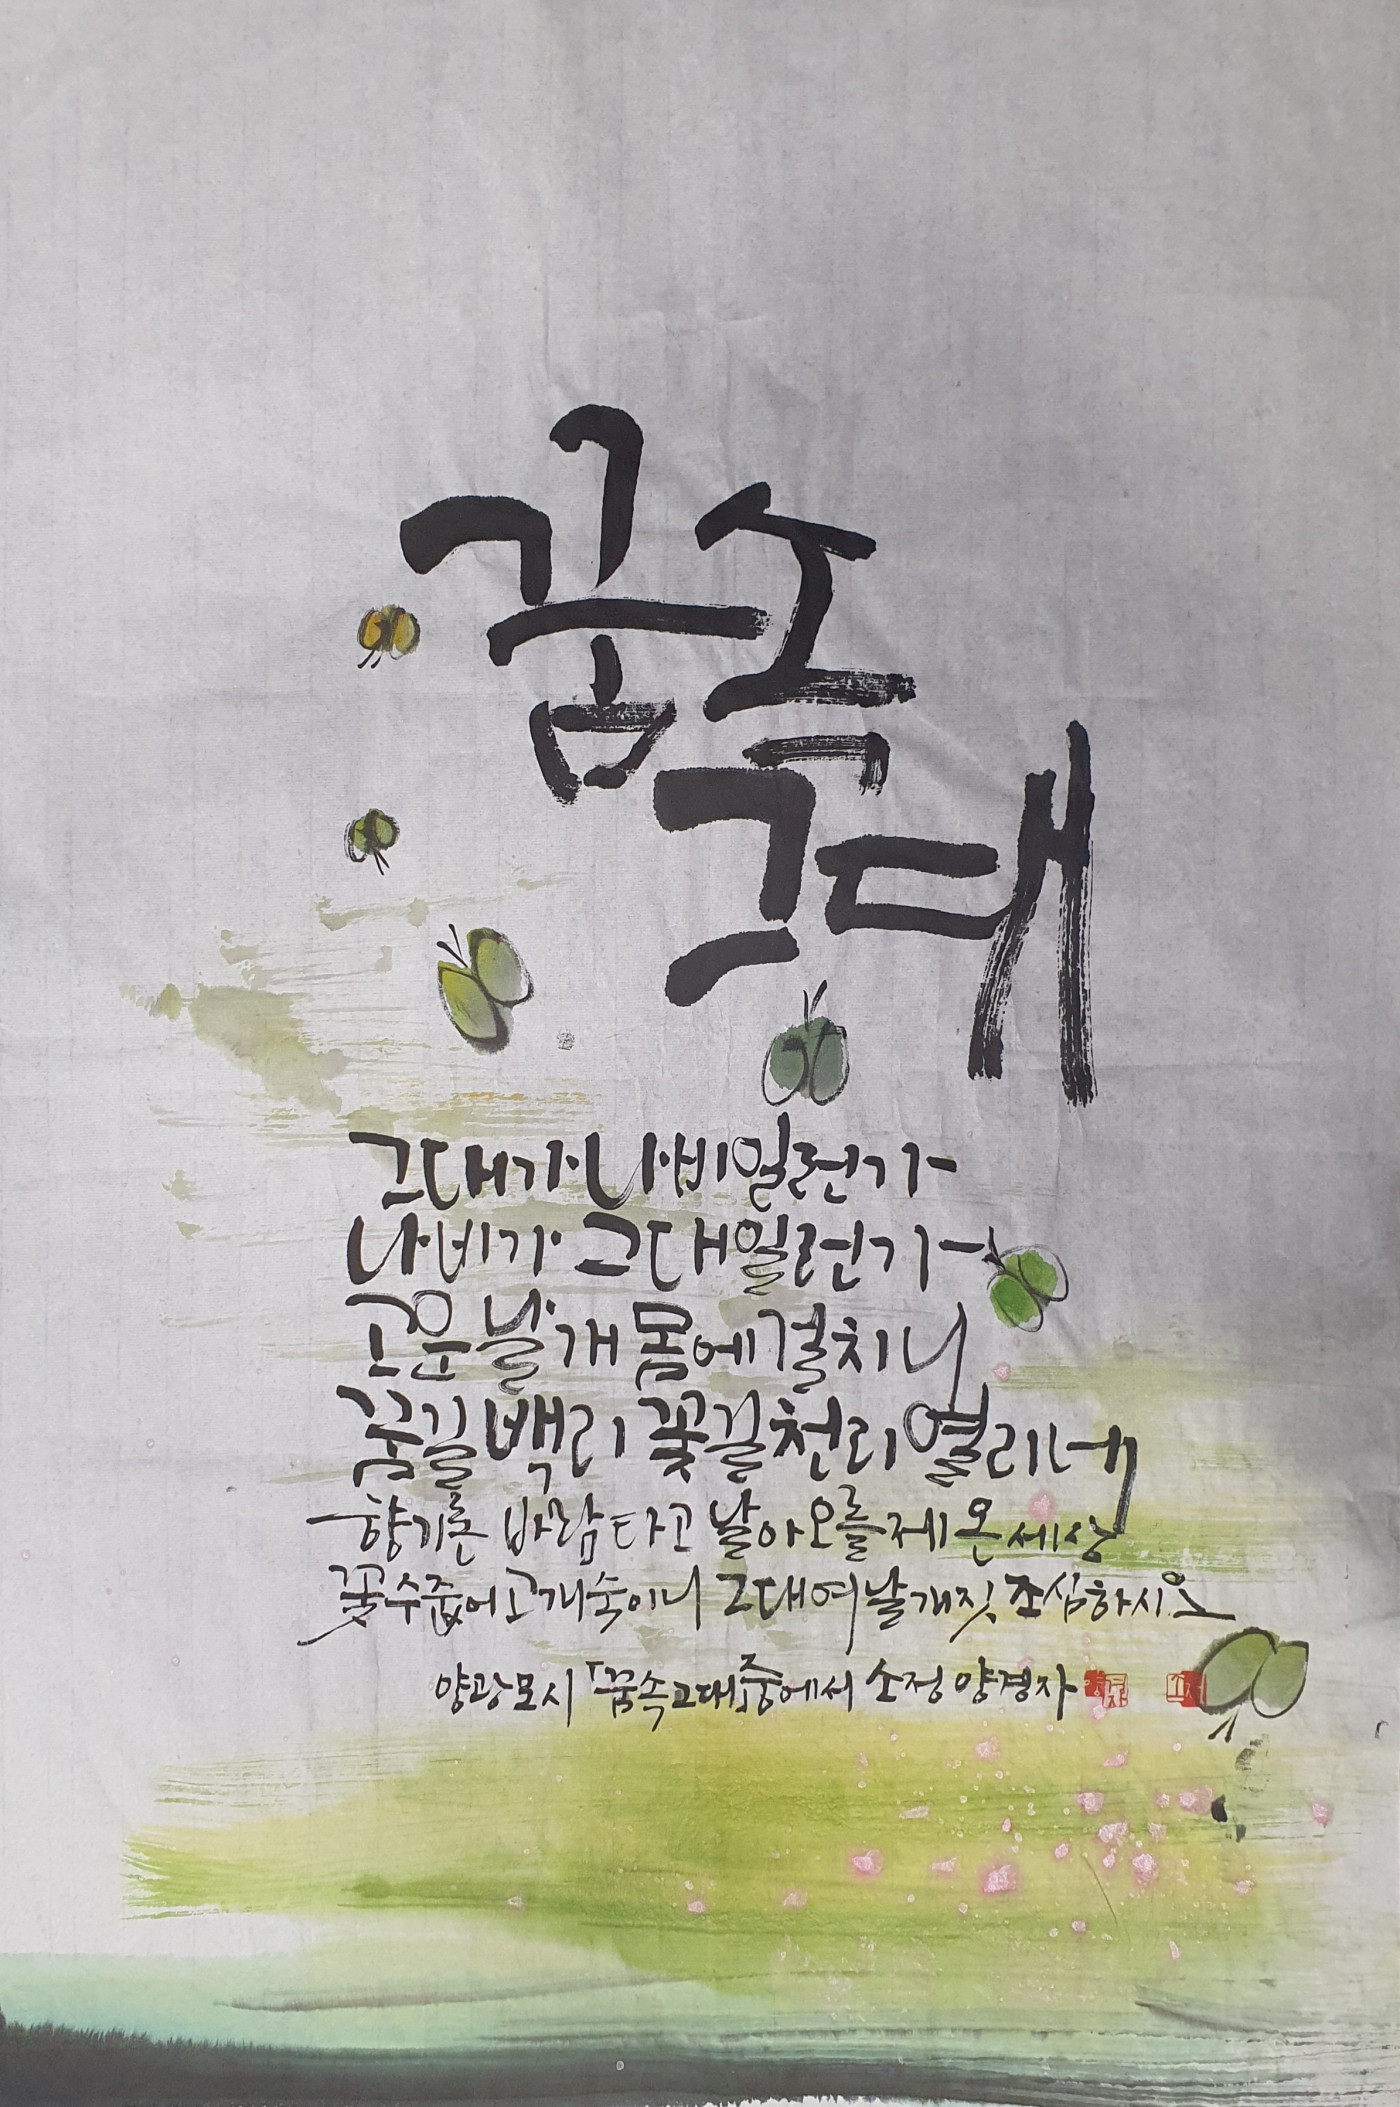 꿈속
그대
그대가 나비일런가
나비가 그대일런가
고운 날개 몸에 걸치니
꿈길 백리 꽃길 천리 열리네
향기론 바람 타고 날아오를제 온 세상
꽃 수줍어 고개 숙이니 그대여 날개짓 조심하시오
양광모 시 「꿈속그대」중에서 소정 양경자